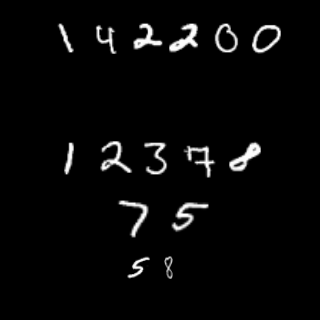 142200
12378
75
58